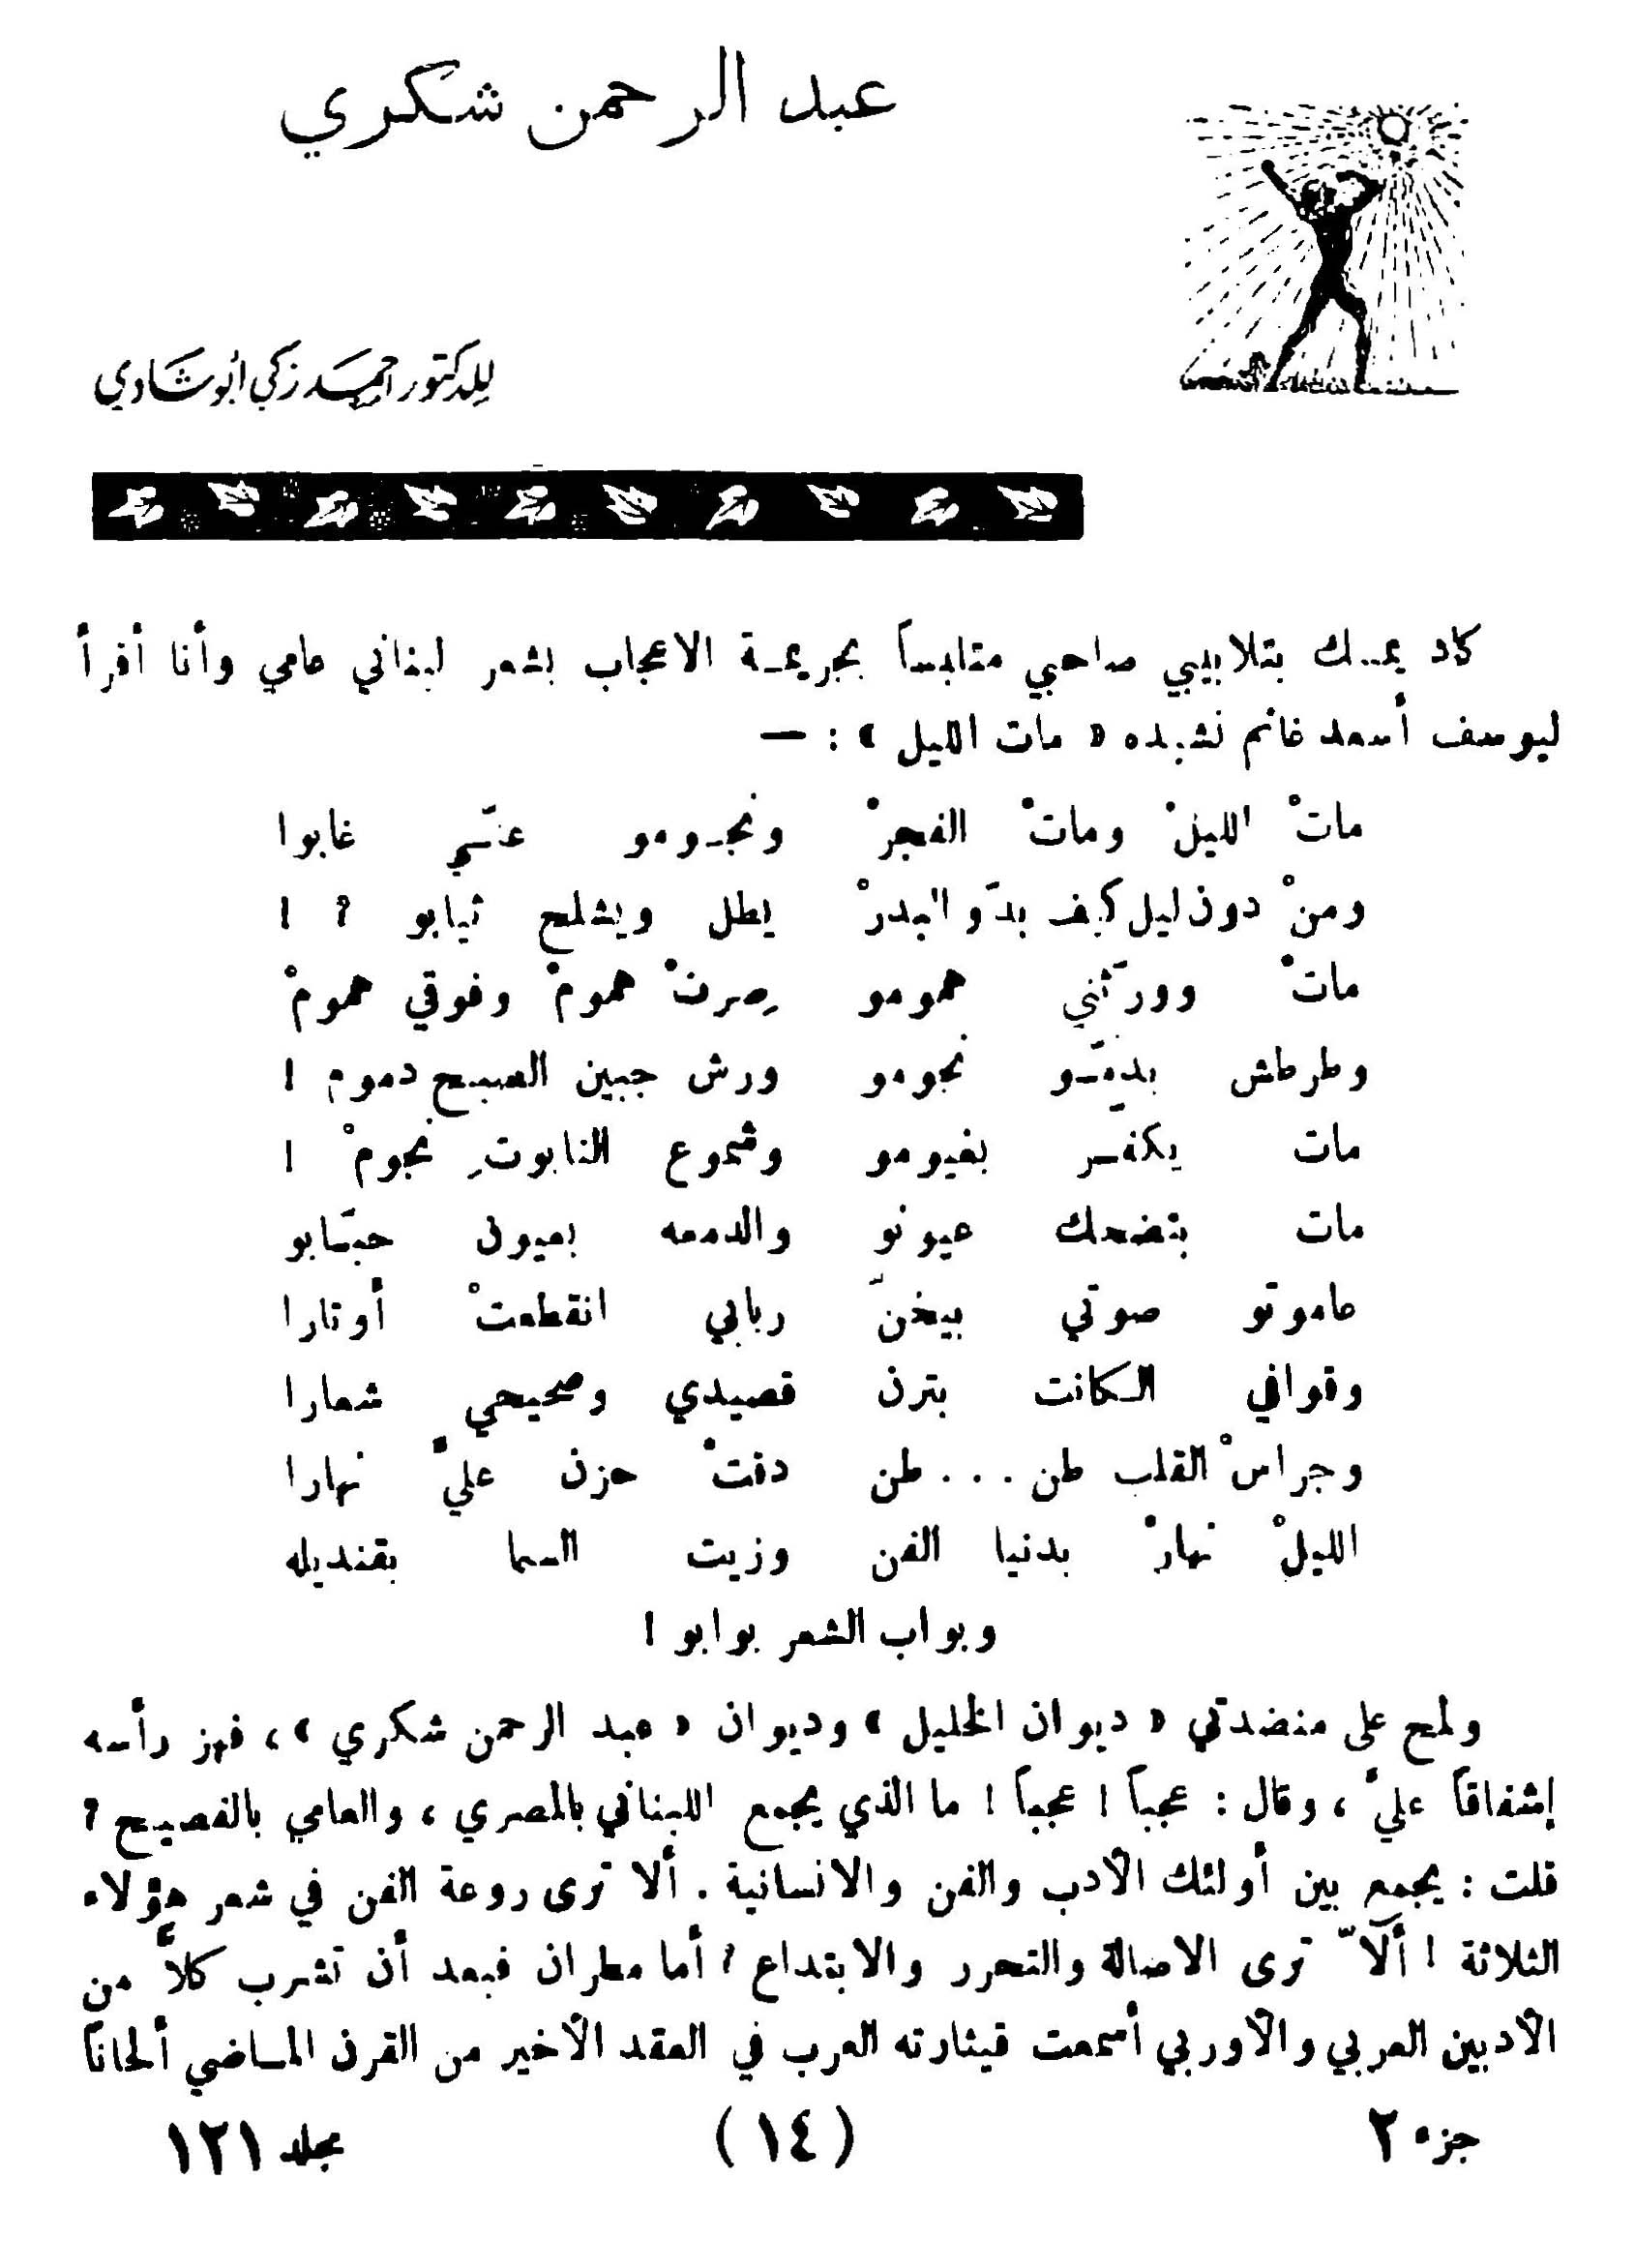 عبد الرحمن شكري
للدكتور احمد زكي أبو شادي
كاد يمسك بتلابيبي صاحبي متلبساً بجريمة الاعجاب بشعر لبناني عامي وأنا أقرأ
ليوسف أسعد غانم نشيده « مات الليل » : —
ماتْ الليلْ وماتْ الفجرْ ونجومو عنّي غابوا
ومنْ دون ليل كيف بدّو البدرْ يطل ويشلح ثيابو ؟ !
ماتْ وورّثني همومو صِرتْ همومْ وفوقي همومْ
وطرطش بدمّو نجومو ورش جبين الصبح دموم !
مات يكفر بغيومو وشموع التابوتِ نجومْ !
مات بتضحك عيونو والدمعه بعيون حبّابو
عاموتو صوتي بيخنّ ربابي انقطعتْ أوتارا
وقوافي الكانت بترن قصيدي وصحيحي شعارا
وجراسْ القلب طن . . . طن دقتْ حزن عليّ نهارا
الليلْ نهارْ بدنيا الفن وزيت السما بقنديله
وبواب الشعر بوابو !
ولمح على منضدتي « ديوان الخليل » وديوان « عبد الرحمن شكري » ، فهز رأسه
إشفاقاً عليّ ، وقال : عجباً ! عجباً ! ما الذي يجمع اللبناني بالمصري ، والعامي بالفصيح ؟
قلت : يجمع بين أولئك الأدب والفن والانسانية . ألا ترى روعة الفن في شعر هؤلاء
الثلاثة ! ألاّ ترى الاصالة والتحرر والابتداع ؟ أما مطران فبعد أن تشرب كلاًّ من
الأدبين العربي والأوربي أسمعت قيثارته العرب في العقد الأخير من القرن الماضي ألحاناً
جزء ٢ (١٤) مجلد ١٢١